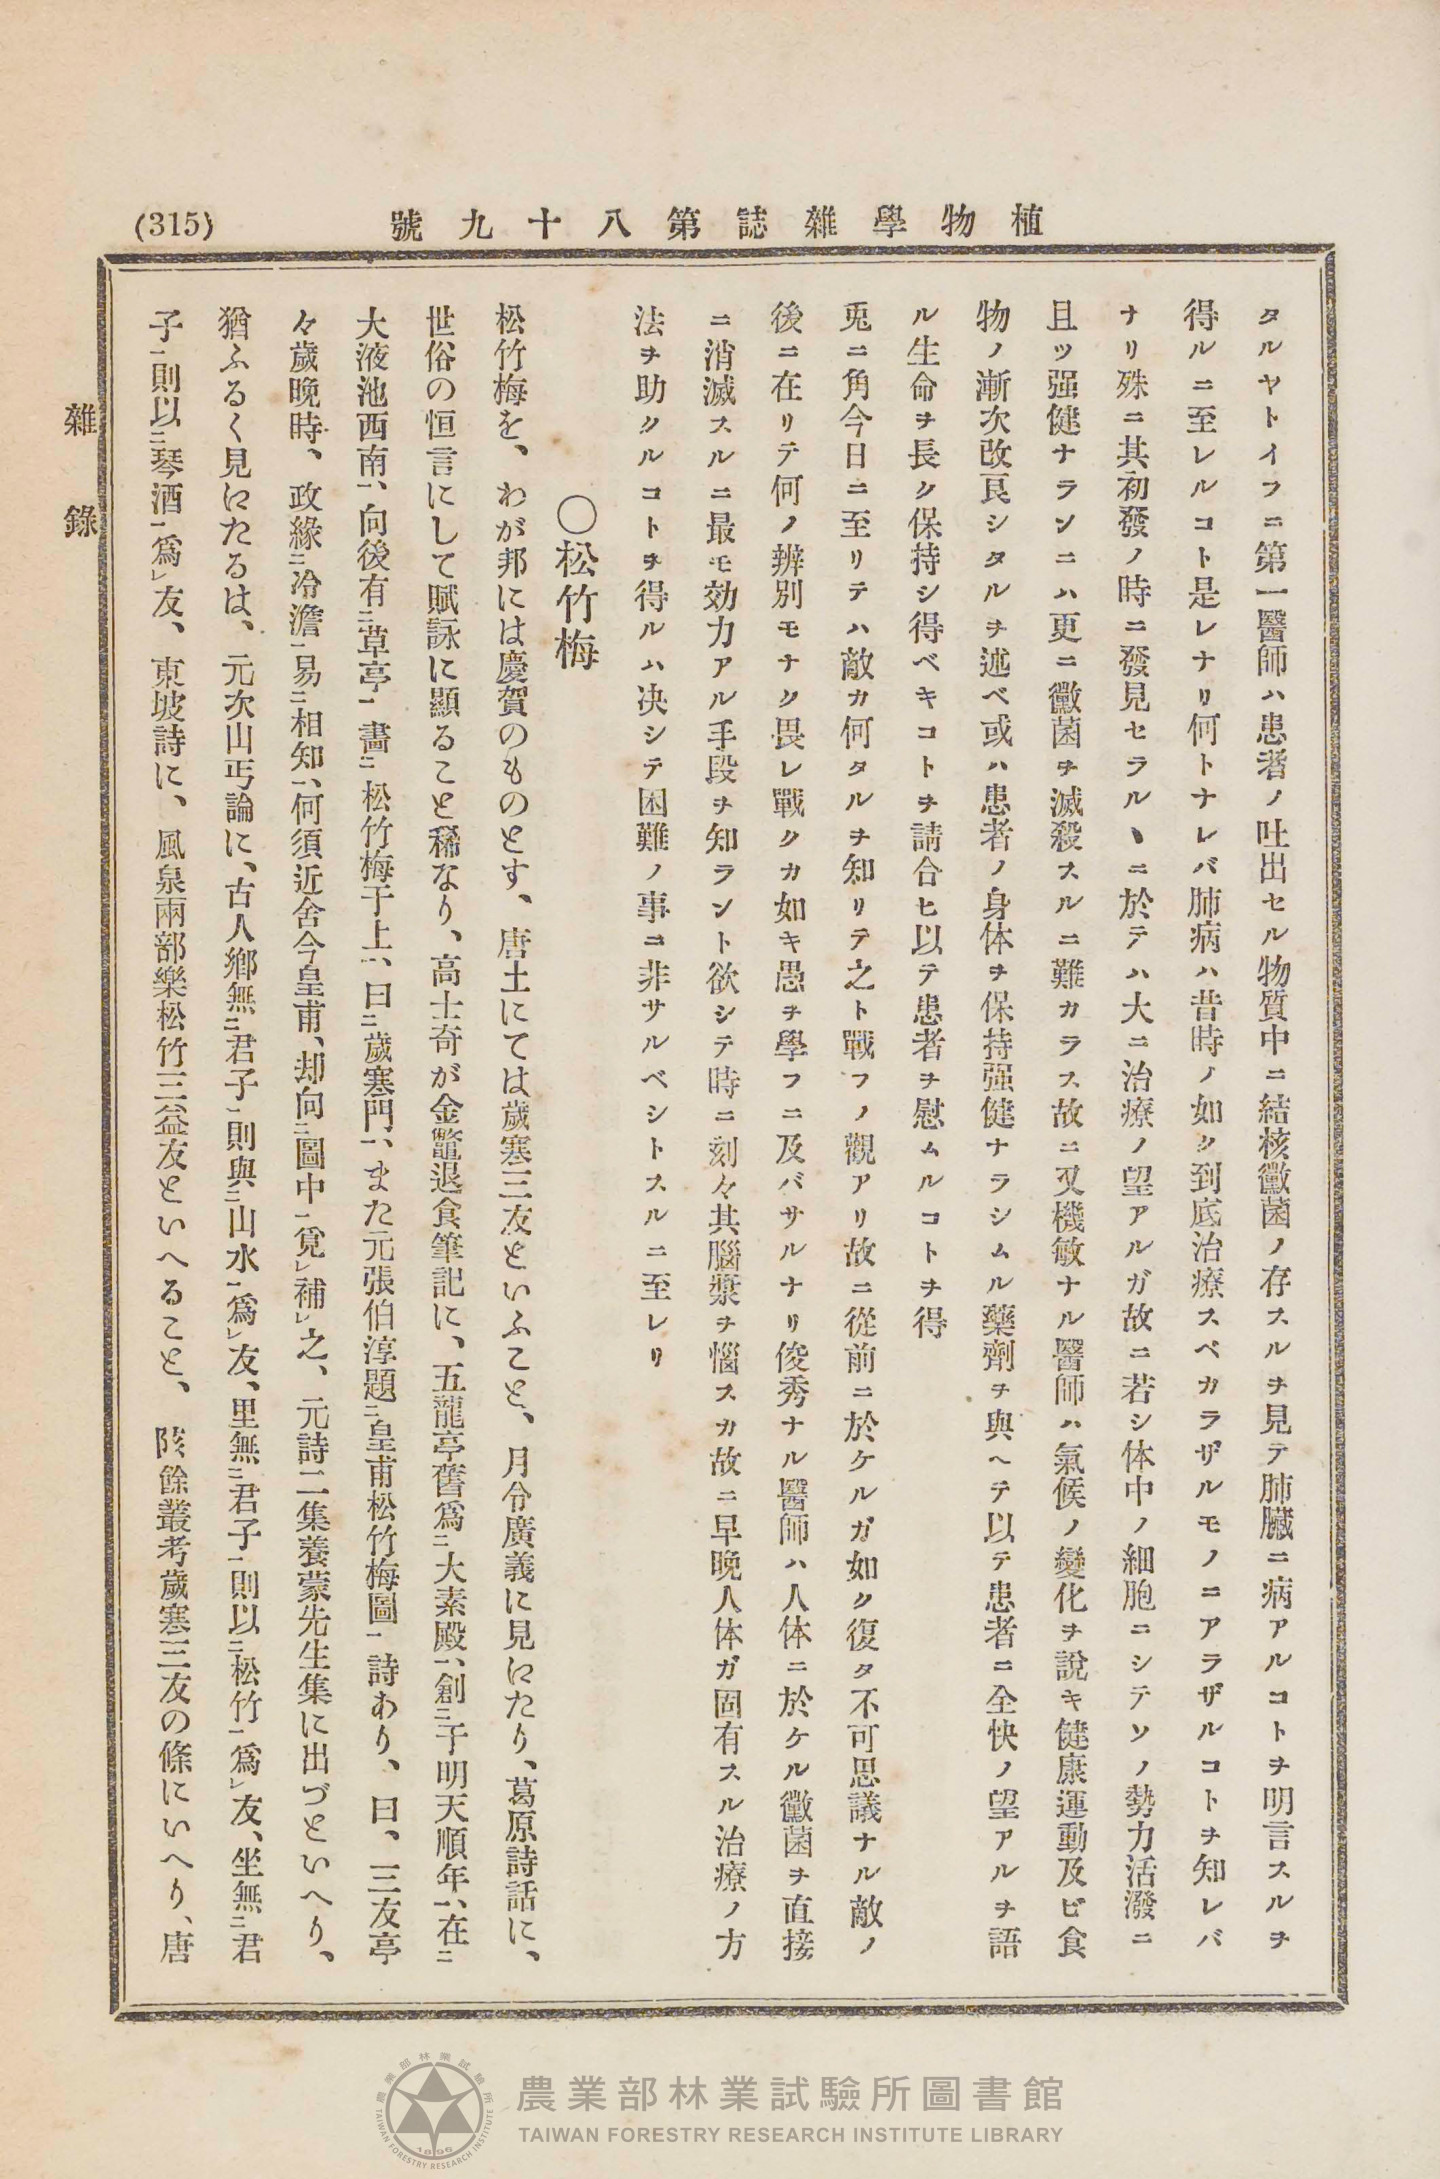 植物學雜誌第八十九號
(315)
タルヤトイフニ第一醫師ハ患者ノ吐出セル物質中ニ結核黴菌ノ存スルヲ見テ肺臟ニ病アルコトヲ明言スルヲ
得ルニ至レルコト是レナリ何トナレバ肺病ハ昔時ノ如ク到底治療スベカラザルモノニアラザルコトヲ知レバ
ナリ殊ニ其初發ノ時ニ發見セラルヽニ於テハ大ニ治療ノ望アルガ故ニ若シ体中ノ細胞ニシテソノ勢力活潑ニ
且ツ强健ナランニハ更ニ黴菌ヲ滅殺スルニ難カラス故ニ又機敏ナル醫師ハ氣候ノ變化ヲ說キ健康運動及ビ食
物ノ漸次改良シタルヲ述ベ或ハ患者ノ身体ヲ保持强健ナラシムル藥劑ヲ與ヘテ以テ患者ニ全快ノ望アルヲ語
ル生命ヲ長ク保持シ得ベキコトヲ請合ヒ以テ患者ヲ慰ムルコトヲ得
兎ニ角今日ニ至リテハ敵カ何タルヲ知リテ之ト戰フノ觀アリ故ニ從前ニ於ケルガ如ク復タ不可思議ナル敵ノ
後ニ在リテ何ノ辨別モナク畏レ戰クカ如キ愚ヲ學フニ及バサルナリ俊秀ナル醫師ハ人体ニ於ケル黴菌ヲ直接
ニ消滅スルニ最モ効力アル手段ヲ知ラント欲シテ時ニ刻々其腦漿ヲ惱スカ故ニ早晚人体ガ固有スル治療ノ方
法ヲ助クルコトヲ得ルハ决シテ困難ノ事ニ非サルベシトスルニ至レリ
〇松竹梅
松竹梅を、わが邦には慶賀のものとす、唐土にては歲寒三友といふこと、月令廣義に見江たり、葛原詩話に、
世俗の恒言にして賦詠に顯ること稀なり、高士奇が金鼇退食筆記に、五龍亭舊爲ニ大素殿一、創ニ于明天順年一、在ニ
大液池西南一、向後有ニ草亭一畵ニ松竹梅于上一、曰ニ歲寒門一、また元張伯淳題ニ皇甫松竹梅圖一詩あり、曰、三友亭
々歲晚時、政緣ニ冷澹一易ニ相知一、何須近舍今皇甫、却向ニ圖中一覓レ補レ之、元詩二集養蒙先生集に出づといへり、
猶ふるく見江たるは、元次山丐論に、古人鄕無ニ君子一則與ニ山水一爲レ友、里無ニ君子一則以ニ松竹一爲レ友、坐無ニ君
子一則以ニ琴酒一爲レ友、東坡詩に、風泉兩部樂松竹三益友といへること、陔餘叢考歲寒三友の條にいへり、唐
雜錄
農業部林業試驗所圖書館
TAIWAN FORESTRY RESEARCH INSTITUTE LIBRARY
農業部林業試驗所
1896
TAIWAN FORESTRY RESEARCH INSTITUTE